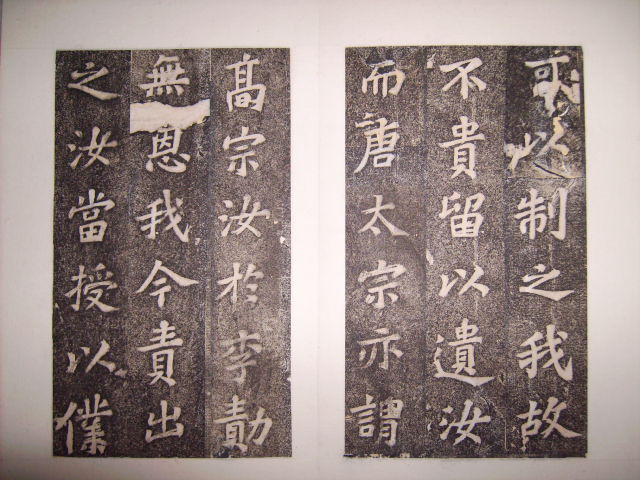 可以制之我故
不貴留以遺汝
而唐太宗亦謂
髙宗汝於李勣
無恩我今責出
之汝當授以僕